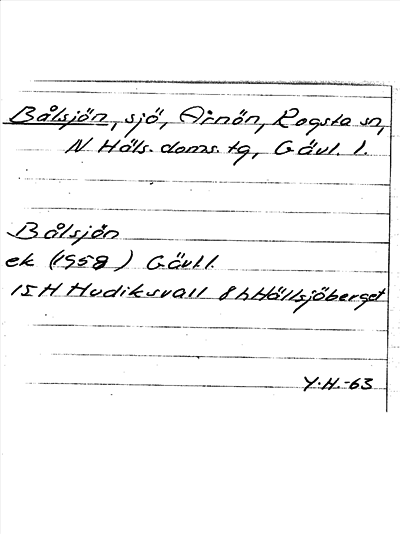 Bålsjön, sjö, Arnön, Rogsta sn,
N Häls. doms. tg, Gävl. l.
Bålsjön
ek (1958) Gävl.l.
15H Hudiksvall 8h Hällsjöberget
Y.H.-63